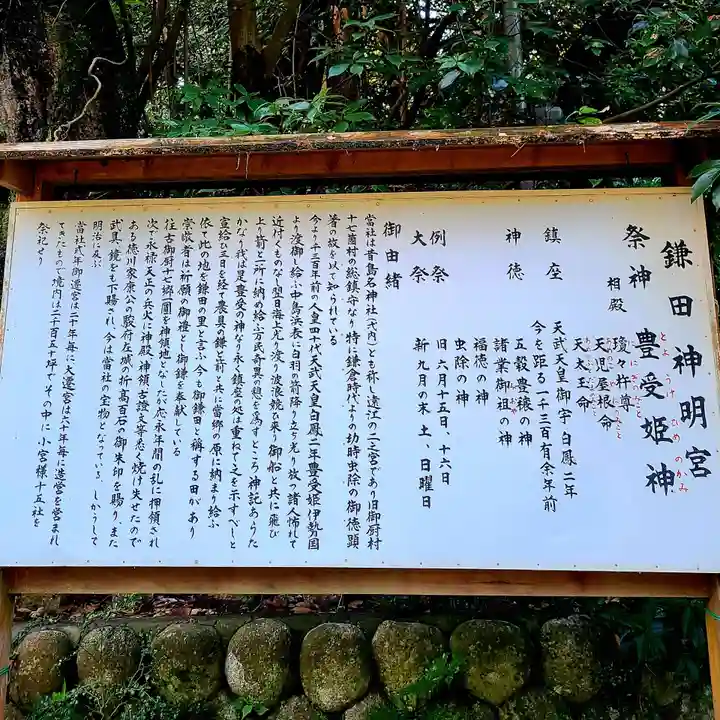 鎌田神明宮
祭神 豊受姫神
とようけ ひめ のかみ
相殿 瓊々杵尊
天児屋根命
天太玉命
鎮座 天武天皇御宇 白鳳二年
今を距る一千三百有余年前
神徳 五穀豊穣の神
諸業御祖の神
おや
福徳の神
虫除の神
例祭 旧六月十五日、十六日
大祭 新九月の末 土、日曜日
御由緒
當社は昔島名神社(式内)とも称し遠江の二之宮であり旧御厨村
十七箇村の総鎮守なり 特に鎌倉時代よりの功時虫除の御徳顕
著の故を以て知られている
今より千三百年前の人皇四十代天武天皇白鳳二年豊受姫伊勢国
より渡御し給ふ中島浜表に白羽の箭降り立ち光り放つ諸人怖れて
近付くものなし翌日海上光り渡り波浪競ひ来り御船と共に飛び
上り前と一所に納め給ふ万民奇異の憩を為すところ神記あらた
かなり我は是豊受の神なり永く鎮座の処は重ねて之を示すべしと
宣給ふ三日を経て農具の鎌と前と共に當郷の原に納まり給ふ
依て此の地を鎌田の里と言ふ 今も御鎌田と稱する田があり
崇敬者は祈願の御禮として御鎌を奉献している
往古御厨十七郷一圓を神領地となしたが応永年間の乱に押領され
次で永禄天正の兵火に神殿、神領古證文等悉く焼け失せたので
ある徳川家康公の駿府在城の折高百石の御朱印を賜りまた
武具、鏡をも下賜され、今は當社の宝物となっている。しかうして
明治に及ぶ
當社式年御遷宮は二十年毎に大遷宮は六十年毎に造宮を営まれ
てきたもので境内は二千百五十坪でその中に小宮様十五社を
祭祀せり